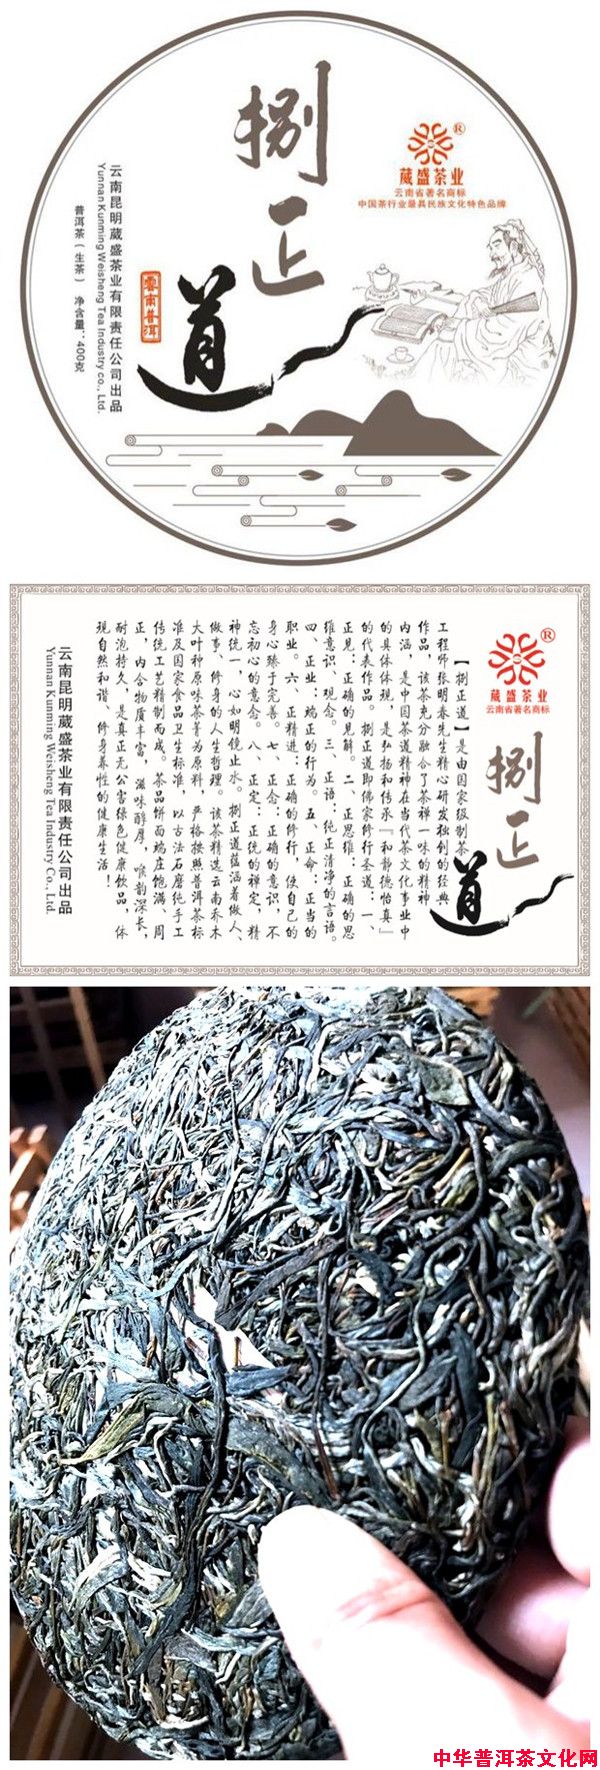 捌正道
®
葳盛茶业
云南省著名商标
中国茶行业最具民族文化特色品牌
雲南普洱
云南昆明葳盛茶业有限责任公司出品
Yunnan Kunming Weisheng Tea Industry co., Ltd.
普洱茶(生茶) 净含量:400克
®
葳盛茶业
云南省著名商标
捌正道
【捌正道】是由国家级制茶
工程师张明春先生精心研发独创的经典
作品,该茶充分融合了茶禅一味的精神
内涵,是中国茶道精神在当代茶文化事业中
的具体体现,是弘扬和传承『和静德怡真』
的代表作品。捌正道即佛家修行圣道:一、
正见:正确的见解。二、正思维:正确的思
维意识、观念。三、正语:纯正清净的言语。
四、正业:端正的行为。五、正命:正当的
职业。六、正精进:正确的修行,使自己的
身心臻于完善。七、正念:正确的意识,不
忘初心的意念。八、正定:正统的禅定,精
神统一,心如明镜止水。捌正道蕴涵着做人、
做事、修身的人生哲理。该茶精选云南乔木
大叶种原味茶菁为原料,严格按照普洱茶标
准及国家食品卫生标准,以古法石磨纯手工
传统工艺精制而成。茶品饼面端庄饱满、周
正,内含物质丰富,滋味醇厚,喉韵深长,
耐泡持久,是真正无公害绿色健康饮品,体
现自然和谐、修身养性的健康生活!
云南昆明葳盛茶业有限责任公司出品
Yunnan Kunming Weisheng Tea Industry Co., Ltd.
中华普洱茶文化网